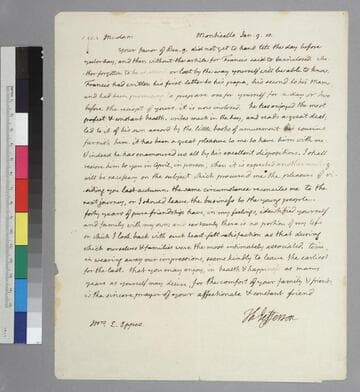 Dear Madam Monticello Jan. 9. 10.
Your favor of Dec. 9. did not get to hand till the day before
yesterday, and then without the article for Francis said to be inclosed. whe-
ther forgotten to be or lost by the way yourself will be able to know.
Francis had written his first letter to his papa, his second to his Mama
and had been to prepare one for yourself for a day or two
before the reciept of yours. it is now inclosed. he has enjoyed the most
perfect & constant health. rides much in the day, and reads a great deal,
led to it of his own accord by the little books of amusement
furnish him. it has been a great pleasure to me to have him with me.
indeed he has endeared us all by his excellent dispositions. I shall
restore him to you in April, in person, when it is expected another
will be necessary on the subject which procured me the pleasure of
you last autumn. the same circumstance reconciles me to the
next journey, or I should leave the business to the young people.
forty years of pure friendship have, in my feelings, identified yourself
and family with my own and certainly there is no portion of my life
on which I look back with such heart felt satisfaction as that during
which ourselves & families were the most intimately associated. time,
in wearing away our impressions, seems kindly to leave the earliest
for the last. that you may enjoy, in health & happiness as many
years as yourself may desire, for the comfort of your family & friends
is the sincere prayer of your affectionate & constant friend
Th Jefferson
Mrs. E. Eppes.